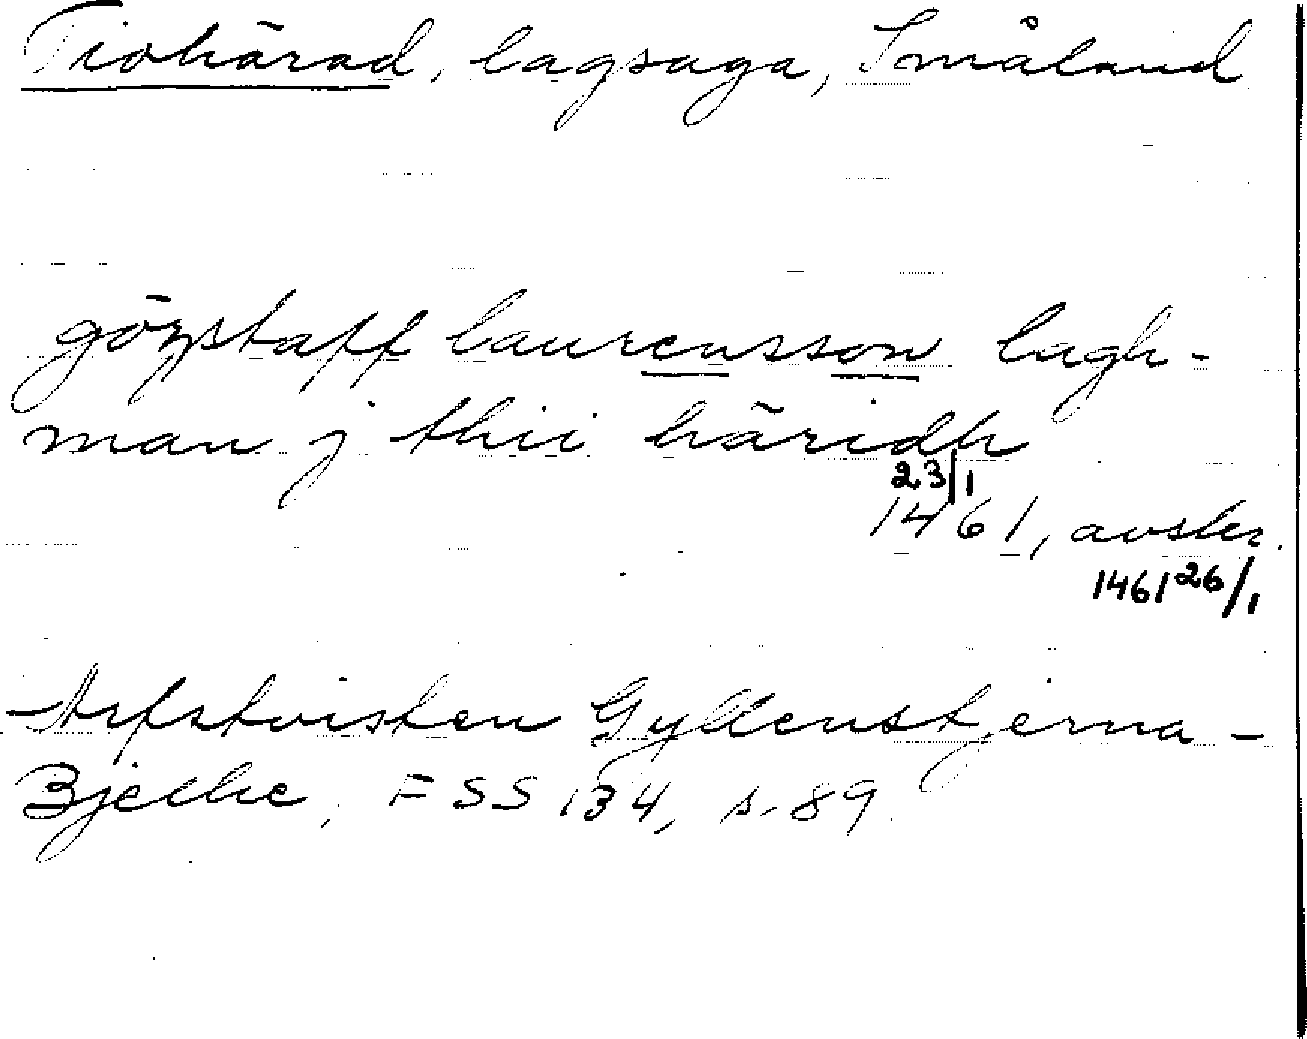 Tiohärad, lagsaga, Småland
gözstaff laurensson lagh-
man j thii häridh
23/1
1461, avskr.
1461 26/1
Arfstvisten Gyllenstjerna-
Bjelke, FSS 134, s. 89.